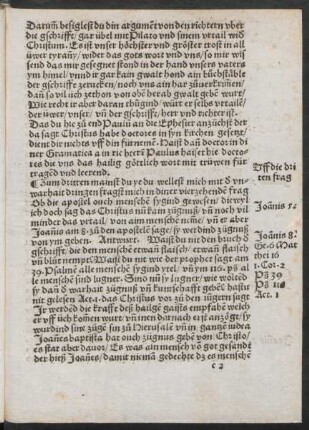 Darum̃ besiglest du din argumẽt von den richtern vber
die gschrifft/ gar übel mit Pilato vnd sinem vrtail wid̾
Christum. Es ist vnser höchster vnd gröster trost in all
üwer tyrañy/ wider das gots wort vnd vns/ so mir wis
send das mir gesegnet stond in der hand vnsers vaters
ym himel/ vnnd ir gar kain gwalt hond ain büchstäble
der gschrifft zerucken/ noch vns ain har zůuerkrim̃en/
dañ so vil üch zethon von obẽ herab gwalt gebẽ wurt/
Wie recht ir aber daran thügind/ würt er selbs vrtailẽ/
der üwer/ vnser/ vñ der gschrifft/ herr vnd richter ist.
Das du hie zů end Paulũ an die Epheser anzüchst der
da sagt Christus habe doctores in syn kirchen gesetzt/
dient dir nichts vff din fürnemẽ. Haist dañ doctor in di
ner Gramatica ain richter? Paulus haist hie docto-
res die vns das hailig götrlich wort mit trüwen für
tragẽd vnd leerend.
Zum dritten mainst du ye du wellest mich mit d̾ vn-
warhait dringen fragst mich in diner vierzehende frag
Ob die apostel ouch menschẽ sygind gewesen/ diewyl
ich doch sag das Christus nü kain zügnuß/ vñ noch vil
minder das vrtail/ von aim menschẽ neme/ vñ er aber
Joañis am 8. zů den apostelẽ sage/ sy werdind zügnuß
von ym geben. Antwurt. Waist du nit den bruch d̾
gschrifft/ die den menschẽ etwañ flaisch/ etwañ flaisch
vñ blůt nempt? Waist du nit wie der prophet sagt am
39. Psalmẽ alle menschẽ sygind ytel/ vñ ym 116. ps al
le menschẽ sind lugner. Sind nũ sy lugner/ wie woltẽd
sy dañ d̾ warhait zügnuß vñ kuntschafft gebẽ? hastu
nit gelesen Act. 1. das Christus vor zů den iügern sagt
Jr werdẽd die krafft deß hailgẽ gaists empfahẽ welch
er vff üch komen wurt/ vñ inen darnach erst anzögt/ sy
wurdind sine zügẽ sin zů Hierusalẽ vñ in gantzẽ iudea
Joañes baptista hat ouch zügnus gebẽ von Christo/
es stat aber dauor/ Es was ain mensch võ got gesandt
der hieß Joañes/ damit niemã gedechte dz es menschẽ
c 2
Vff die dri
ten frag
Joãnis 5.
Joãnis 8.
Ge. 6 Mat
thei 16
1. Cor. 2
Ps 39
Ps 116
Act. 1